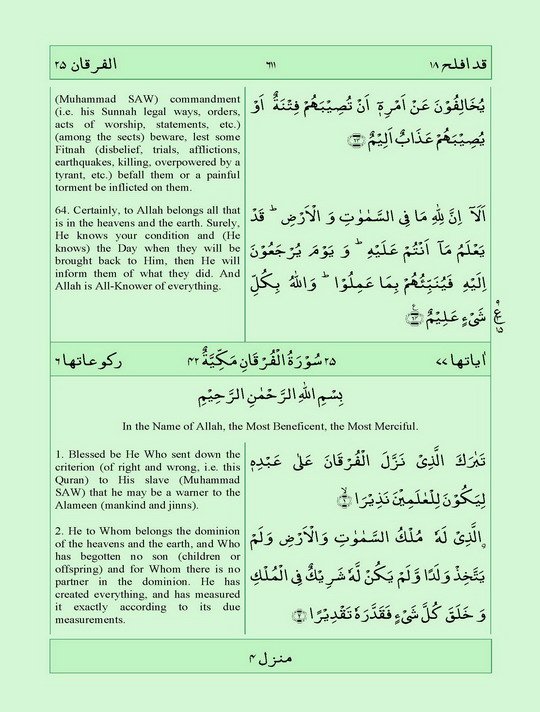 قد افلح ١٨
٦١١
الفرقان ٢٥
(Muhammad SAW) commandment
(i.e. his Sunnah legal ways, orders,
acts of worship, statements, etc.)
(among the sects) beware, lest some
Fitnah (disbelief, trials, afflictions,
earthquakes, killing, overpowered by a
tyrant, etc.) befall them or a painful
torment be inflicted on them.
يُخَالِفُوۡنَ عَنۡ اَمۡرِهٖۤ اَنۡ تُصِيۡبَهُمۡ فِتۡنَةٌ اَوۡ
يُصِيۡبَهُمۡ عَذَابٌ اَلِيۡمٌ ﴿٦٣﴾
64. Certainly, to Allah belongs all that
is in the heavens and the earth. Surely,
He knows your condition and (He
knows) the Day when they will be
brought back to Him, then He will
inform them of what they did. And
Allah is All-Knower of everything.
اَلَاۤ اِنَّ لِلّٰهِ مَا فِى السَّمٰوٰتِ وَ الۡاَرۡضِ‌ ؕ قَدۡ
يَعۡلَمُ مَاۤ اَنۡتُمۡ عَلَيۡهِ ؕ وَ يَوۡمَ يُرۡجَعُوۡنَ
اِلَيۡهِ فَيُنَـبِّـئُـهُمۡ بِمَا عَمِلُوۡا ‌ؕ وَاللّٰهُ بِكُلِّ
شَىۡءٍ عَلِيۡمٌ ﴿٦٤﴾
اٰياتها ٧٧
٢٥ سُوۡرَةُ الۡفُرۡقَانِ مَكِّيَّةٌ ٤٢
ركوعاتها ٦
بِسۡمِ اللّٰهِ الرَّحۡمٰنِ الرَّحِيۡمِ
In the Name of Allah, the Most Beneficent, the Most Merciful.
1. Blessed be He Who sent down the
criterion (of right and wrong, i.e. this
Quran) to His slave (Muhammad
SAW) that he may be a warner to the
Alameen (mankind and jinns).
تَبٰرَكَ الَّذِىۡ نَزَّلَ الۡـفُرۡقَانَ عَلٰى عَبۡدِهٖ
لِيَكُوۡنَ لِلۡعٰلَمِيۡنَ نَذِيۡرَا ۙ﴿١﴾
2. He to Whom belongs the dominion
of the heavens and the earth, and Who
has begotten no son (children or
offspring) and for Whom there is no
partner in the dominion. He has
created everything, and has measured
it exactly according to its due
measurements.
۟الَّذِىۡ لَهٗ مُلۡكُ السَّمٰوٰتِ وَالۡاَرۡضِ وَلَمۡ
يَتَّخِذۡ وَلَدًا وَّلَمۡ يَكُنۡ لَّهٗ شَرِيۡكٌ فِى الۡمُلۡكِ
وَخَلَقَ كُلَّ شَىۡءٍ فَقَدَّرَهٗ تَقۡدِيۡرًا‏ ﴿٢﴾
منزل ٤